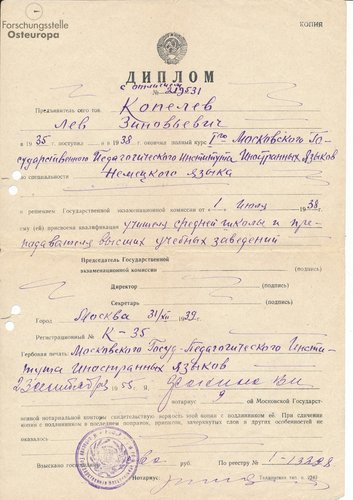 Forschungsstelle
Osteuropa
КОПИЯ
ДИПЛОМ
с отличием
№ 219531
Предъявитель сего тов. Копелев
Лев Зиновьевич
в 1935 г. поступил в 1938 г. окончил полный курс 1го Московского Го-
сударственного Педагогического Института Иностранных Языков
по специальности
Немецкого языка
и решением Государственной экзаменационной комиссии от 1 Июля 1938 г.
ему (ей) присвоена квалификация учителя средней школы и пре-
подавателя высших учебных заведений
Председатель Государственной
экзаменационной комиссии (подпись)
Директор
(подпись)
Секретарь
(подпись)
Город Москва 31/XII 1939 г.
Регистрационный № К-35
Гербовая печать: Московского Госуд-Педагогического Инсти-
тута Иностранных языков
23 сентября 1955 г. Я,
нотариус 9 ой Московской Государст-
венной нотариальной конторы свидетельствую верность этой копии с подлинником её. При сличении
копии с подлинником в последнем поправок, приписок, зачеркнутых слов и других особенностей не
оказалось
Взыскано госпошлины руб. По реестру № 1-13298
Нотариус: